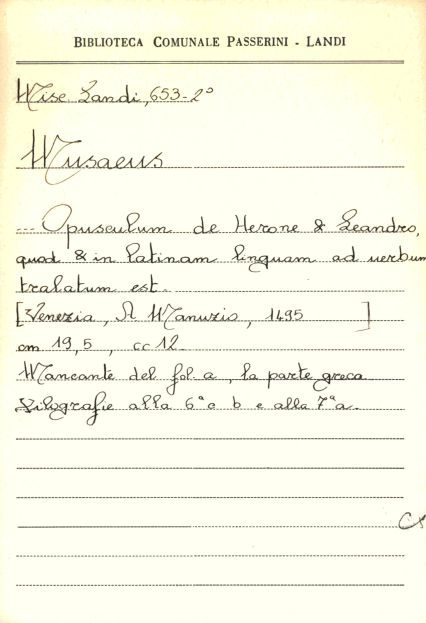 BIBLIOTECA COMUNALE PASSERINI - LANDI
Misc. Landi, 653-2°
Musaeus
--- Opusculum de Herone & Leandro,
quod & in latinam linguam ad uerbum
tralatum est.
[Venezia, A Manuzio, 1495 ]
cm 19,5 , cc 12.
Mancante del fol. a, la parte greca
Xilografie alla 6ª c b e alla 7ª a.